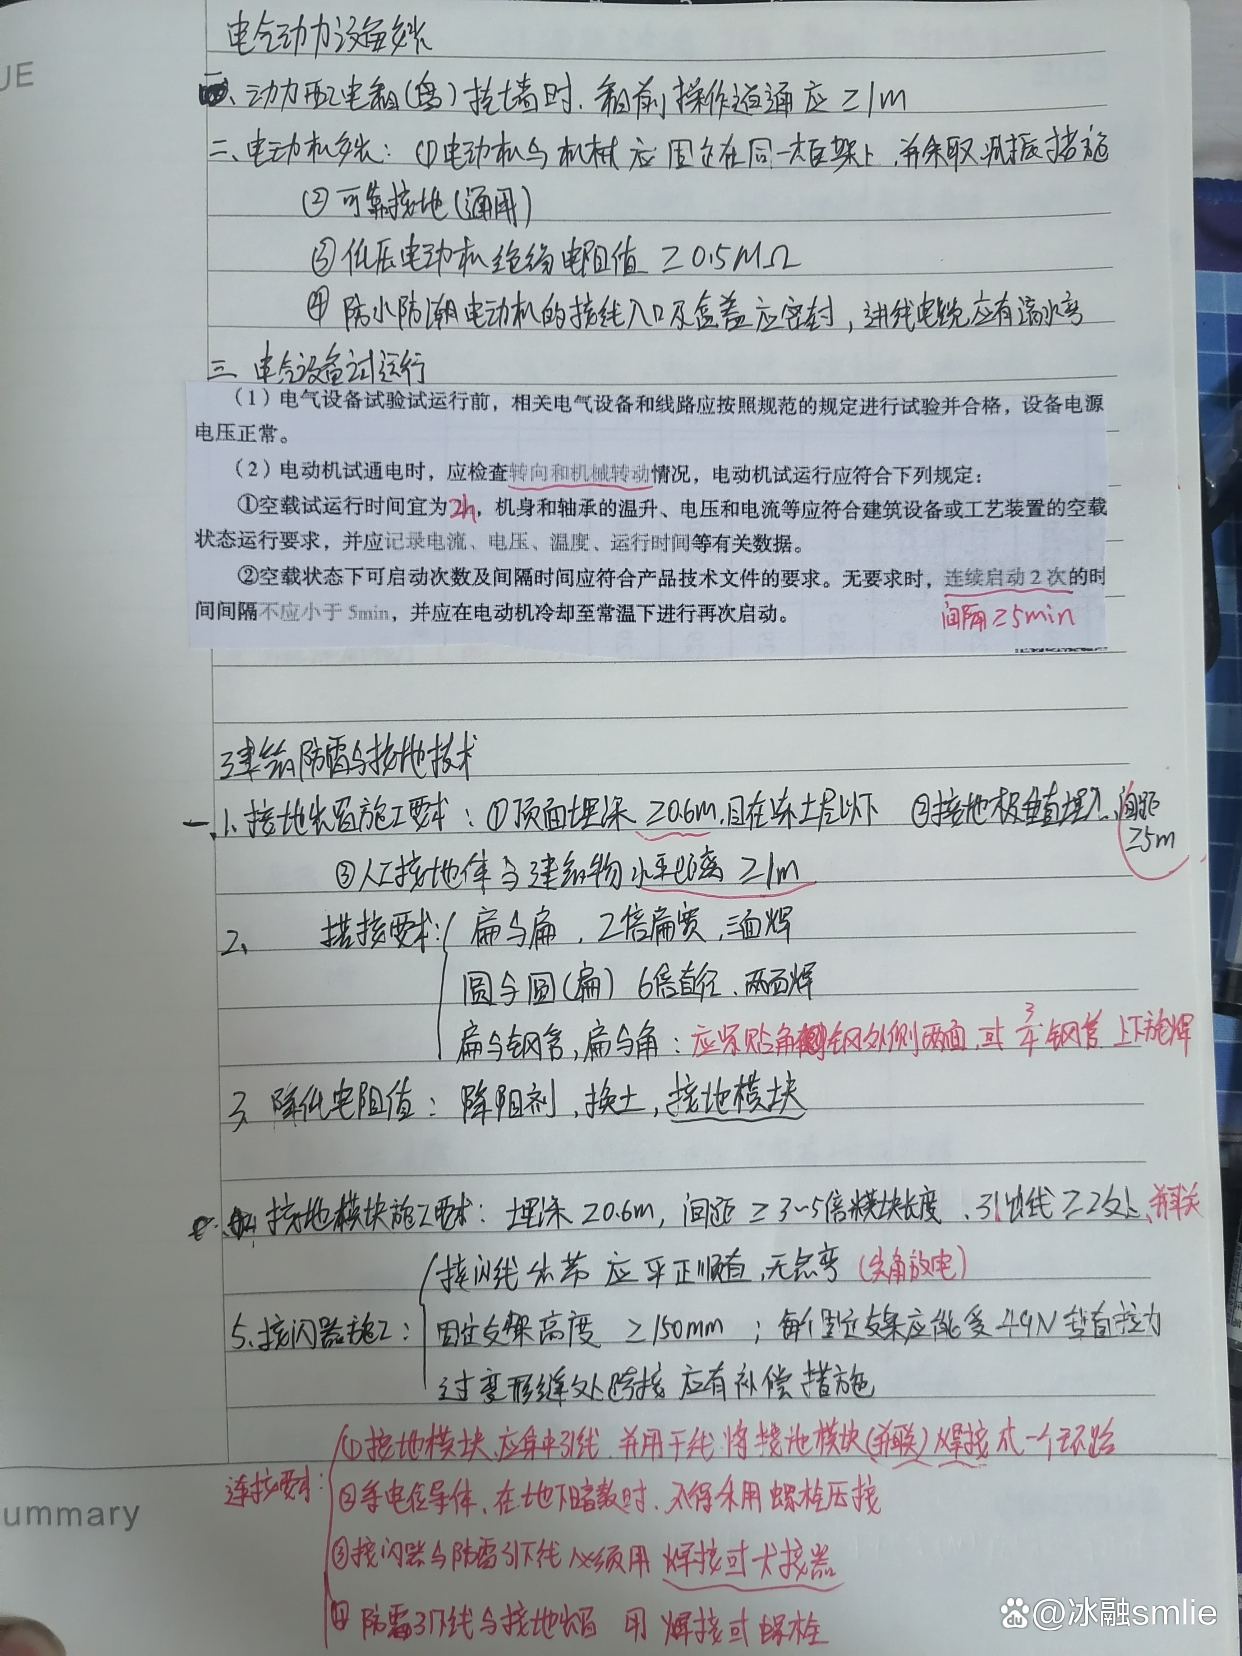 UE
电气动力设备安装
一、动力配电箱(盘)挂墙时、箱前操作通道应≥1m
二、电动机安装：①电动机与机械应固定在同一大巨架上、并采取减振措施
②可靠接地(通用)
③低压电动机绝缘电阻值≥0.5MΩ
④防水防潮电动机的接线入口及盒盖应密封，进线电缆应有滴水弯
三、电气设备试运行
（1）电气设备试验试运行前，相关电气设备和线路应按照规范的规定进行试验并合格，设备电源
电压正常。
（2）电动机试通电时，应检查转向和机械转动情况，电动机试运行应符合下列规定：
①空载试运行时间宜为2h，机身和轴承的温升、电压和电流等应符合建筑设备或工艺装置的空载
状态运行要求，并应记录电流、电压、温度、运行时间等有关数据。
②空载状态下可启动次数及间隔时间应符合产品技术文件的要求。无要求时，连续启动2次的时
间间隔不应小于5min，并应在电动机冷却至常温下进行再次启动。
间隔≥5min
建筑防雷与接地技术
一、1、接地装置施工要求：①顶面埋深≥0.6m,且在冻土层以下 ②接地极垂直埋入、间距
≥5m
③人工接地体与建筑物水平距离≥1m
2、搭接要求：扁与扁，2倍扁宽，三面焊
圆与圆(扁) 6倍直径、两面焊
扁与钢管，扁与角：应紧贴角钢外侧两面，或3/4钢管上下施焊
3、降低电阻值：降阻剂，换土，接地模块
4、接地模块施工要求：埋深≥0.6m，间距≥3~5倍模块长度、引出线≥2处、并联
接闪线 带应平正顺直，无急弯(尖角放电)
5、接闪器施工：固定支架高度≥150mm；每个固定支架应能受49N垂直拉力
过变形缝处跨接应有补偿措施
①接地模块应集中引线，并用干线将接地模块(并联)焊接成一个环路
连接要求：②等电位导体、在地下暗敷时、不得采用螺栓压接
ummary
③接闪器与防雷引下线必须用焊接或卡接器
④防雷引下线与接地装置用焊接或螺栓
Bai du @冰融smlie